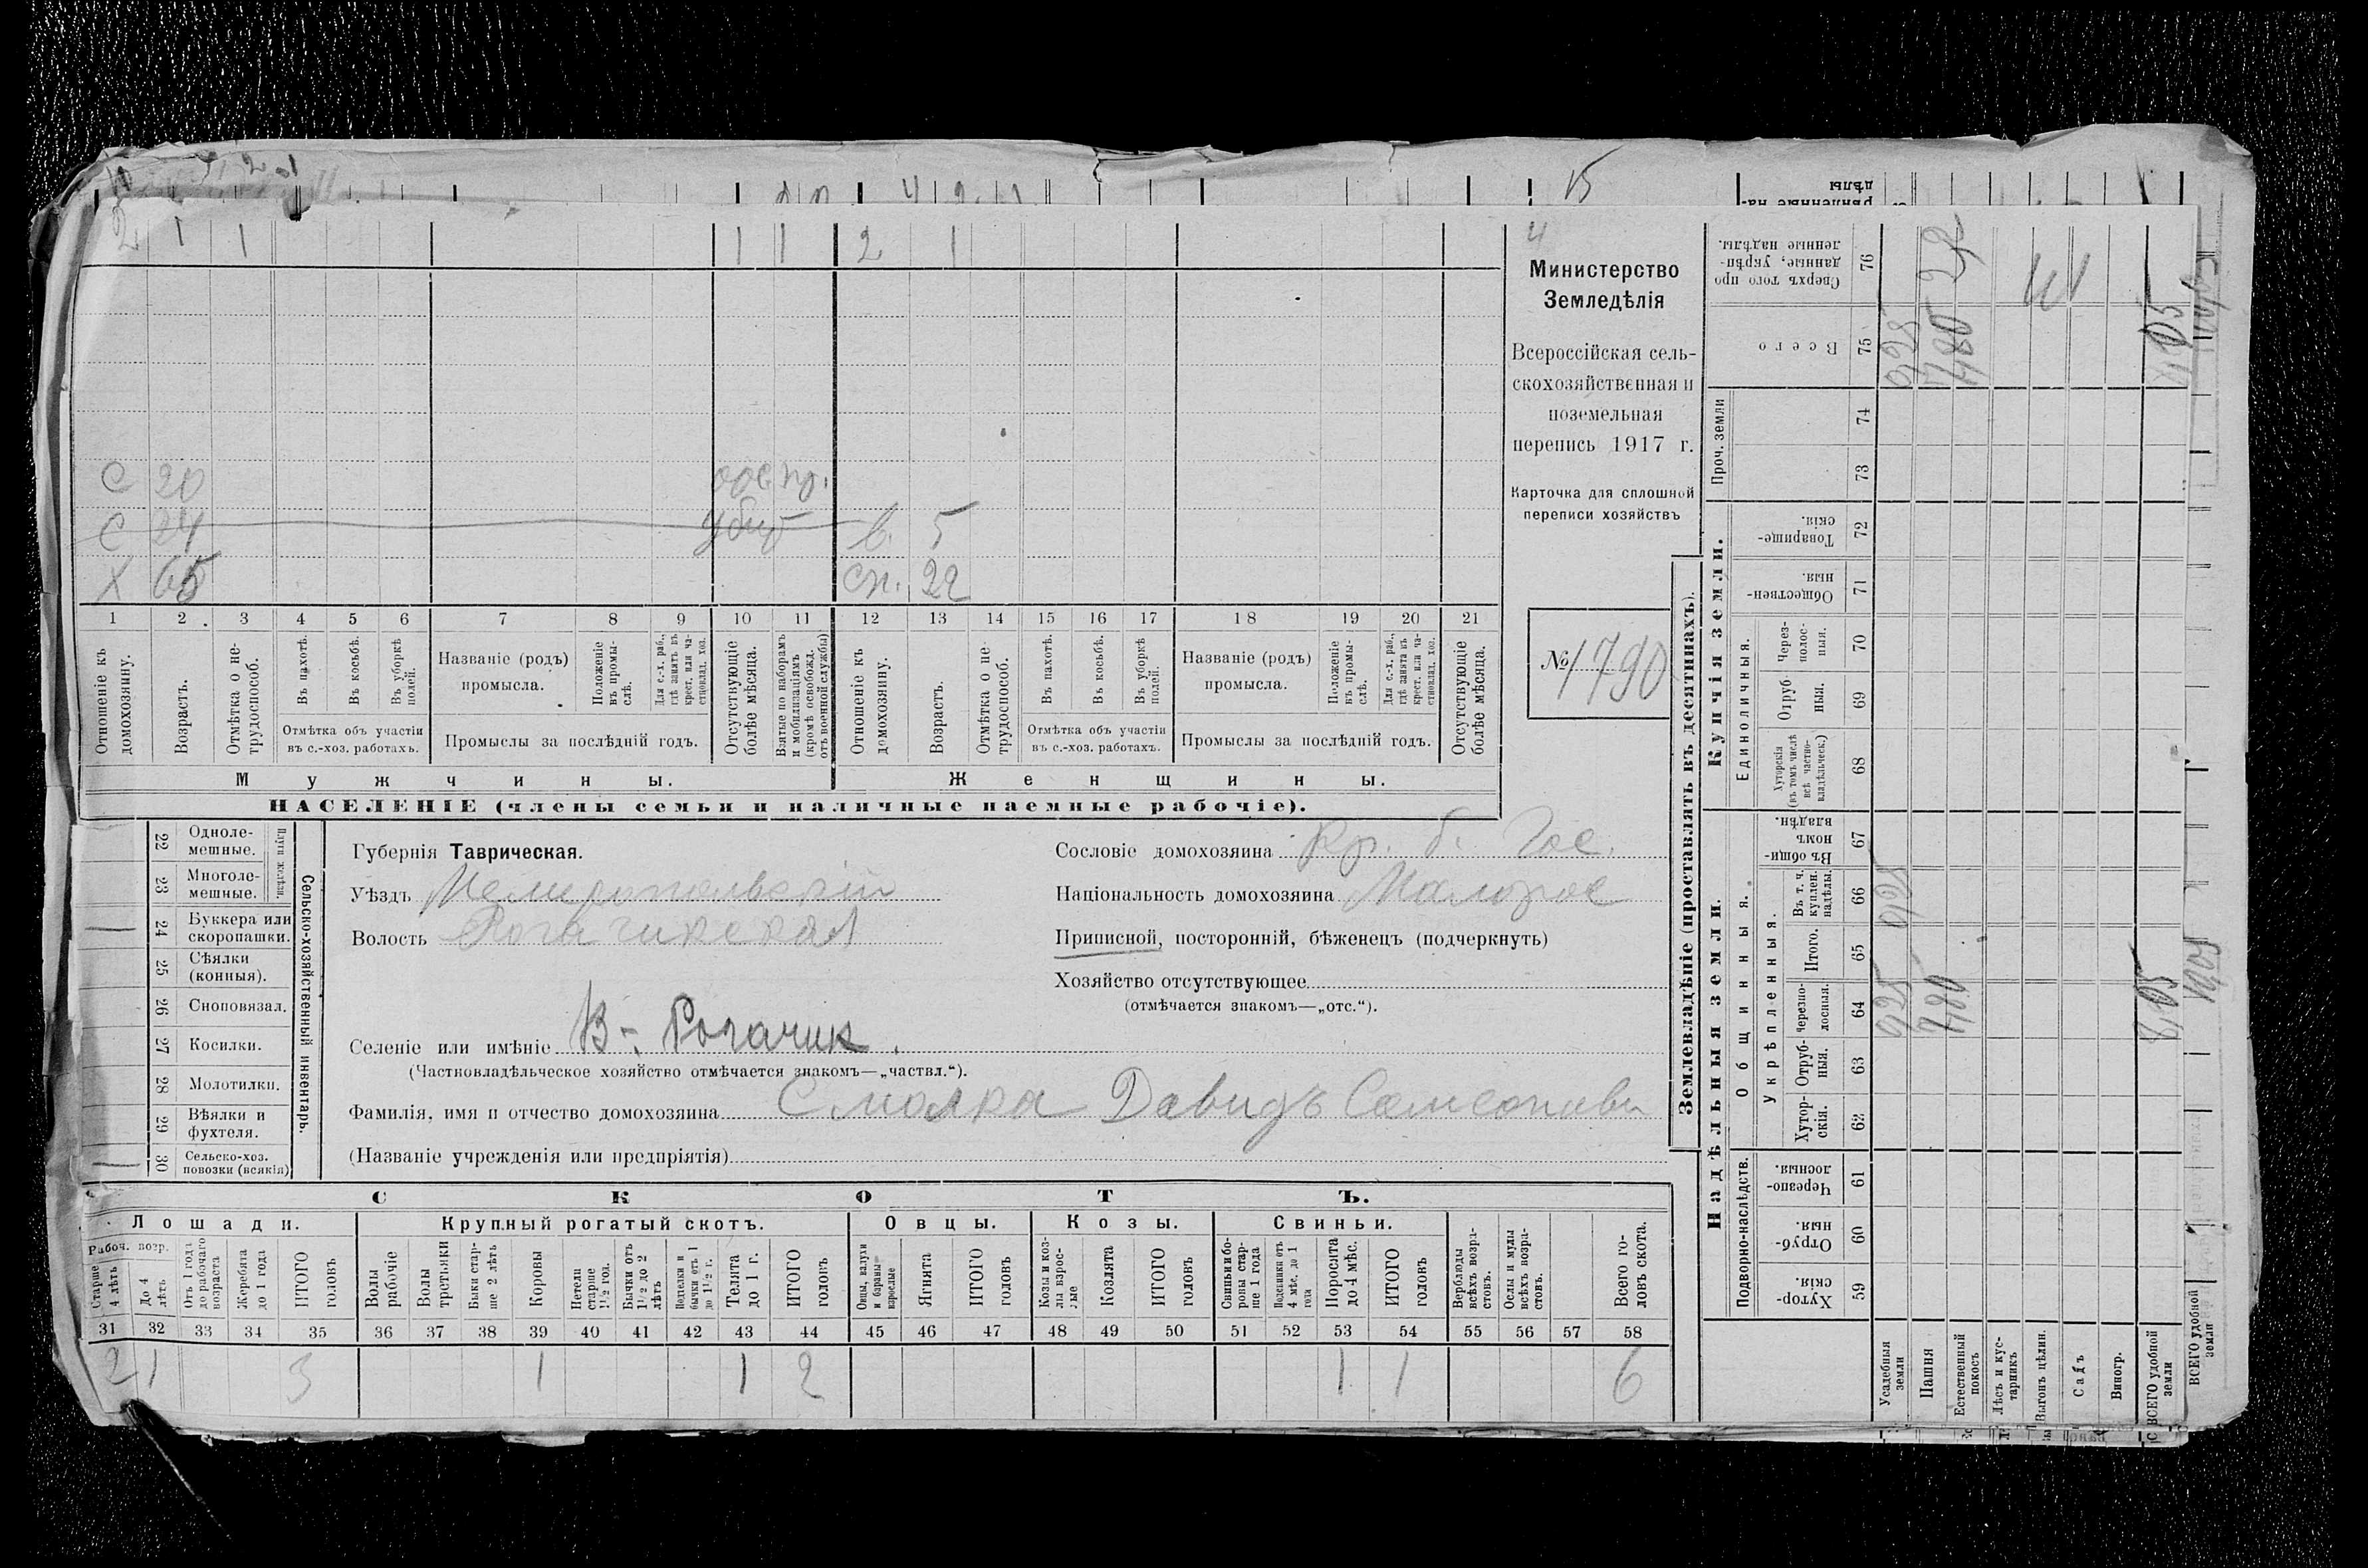 2 1 1 1 1 2 1
С 20
С 24 убит в. 5
Х 65 сн. 22
1 2 3 4 5 6 7 8 9 10 11 12 13 14 15 16 17 18 19 20 21
Отношеніе къ домохозяину.
Возрастъ.
Отмѣтка о нетрудоспособ.
Въ пахотѣ.
Въ косьбѣ.
Въ уборкѣ полей.
Отмѣтка объ участіи въ с.-хоз. работахъ.
Названіе (родъ) промысла.
Положеніе въ промыслѣ.
Для с.-х. раб., гдѣ занятъ въ крест. или частновлад. хоз.
Промыслы за послѣдній годъ.
Отсутствующіе болѣе мѣсяца.
Взятые по наборамъ и мобилизаціямъ (кромѣ освобожд. отъ военной службы)
Отношеніе къ домохозяину.
Возрастъ.
Отмѣтка о нетрудоспособ.
Въ пахотѣ.
Въ косьбѣ.
Въ уборкѣ полей.
Отмѣтка объ участіи въ с.-хоз. работахъ.
Названіе (родъ) промысла.
Положеніе въ промыслѣ.
Для с.-х. раб., гдѣ занята въ крест. или частновлад. хоз.
Промыслы за послѣдній годъ.
Отсутствующіе болѣе мѣсяца.
Мужчины.
Женщины.
НАСЕЛЕНІЕ (члены семьи и наличные наемные рабочіе).
4
Министерство
Земледѣлія
Всероссійская сель-
скохозяйственная и
поземельная
перепись 1917 г.
Карточка для сплошной
переписи хозяйствъ
№ 1790
22 Одноле-мешные.
23 Многоле-мешные.
Плуги желѣзн.
24 Буккера или скоропашки.
25 Сѣялки (конныя).
26 Сноповязал.
27 Косилки.
28 Молотилки.
29 Вѣялки и фухтеля.
30 Сельско-хоз. повозки (всякія)
Сельско-хозяйственный инвентарь.
Губернія Таврическая.
Уѣздъ Мелитопольскій
Волость Рогачикская
Сословіе домохозяина Кр. б. Гос.
Національность домохозяина Малорос
Приписной, посторонній, бѣженецъ (подчеркнуть)
Хозяйство отсутствующее
(отмѣчается знакомъ—„отс.“).
Селеніе или имѣніе В-Рогачик.
(Частновладѣльческое хозяйство отмѣчается знакомъ—„частвл.“).
Фамилія, имя и отчество домохозяина Смаяка Давидъ Самсонови
(Названіе учрежденія или предпріятія)
СКОТЪ.
Лошади. Крупный рогатый скотъ. Овцы. Козы. Свиньи.
Рабоч. возр.
Старше 4 лѣтъ
До 4 лѣтъ
Отъ 1 года до рабочаго возраста
Жеребята до 1 года
ИТОГО головъ
Волы рабочіе
Волы третьяки
Быки старше 2 лѣтъ
Коровы
Нетели старше 1½ год.
Бычки отъ 1½ до 2 лѣтъ
Подтелки и бычки отъ 1 до 1½ г.
Телята до 1 г.
ИТОГО головъ
Овцы, валухи и бараны взрослые
Ягнята
ИТОГО головъ
Козы и козлы взрослые
Козлята
ИТОГО головъ
Свиньи и боровы старше 1 года
Подсвинки отъ 4 мѣс. до 1 года
Поросята до 4 мѣс.
ИТОГО головъ
Верблюды всѣхъ возрастовъ.
Ослы и мулы всѣхъ возрастовъ.
Всего головъ скота.
31 32 33 34 35 36 37 38 39 40 41 42 43 44 45 46 47 48 49 50 51 52 53 54 55 56 57 58
2 1 3 1 1 2 1 1 6
Землевладѣніе (проставлять въ десятинахъ).
Надѣльныя земли.
Купчія земли.
Проч. земли
Подворно-наслѣдств.
Общинныя.
Укрѣпленныя.
Единоличныя.
Сверхъ того проданные, укрѣпленные надѣлы. 76
Всего 75
74
73
Товарищескія. 72
Общественныя. 71
Черезполосныя. 70
Отрубныя. 69
Хуторскія (въ томъ числѣ всѣ частновладѣльческ.) 68
Въ общинномъ владѣн. 67
Въ т. ч. куплен. надѣлы. 66
Итого. 65
Черезполосныя. 64
Отрубныя. 63
Хуторскія. 62
Черезполосныя. 61
Отрубныя. 60
Хуторскія. 59
Усадебныя земли
Пашня
Естественный покосъ
Лѣсъ и кустарникъ
Выгонъ цѣлин.
Садъ
Виногр.
ВСЕГО удобной земли
0,25
7,80
8,05
ВСЕГО удобной земли